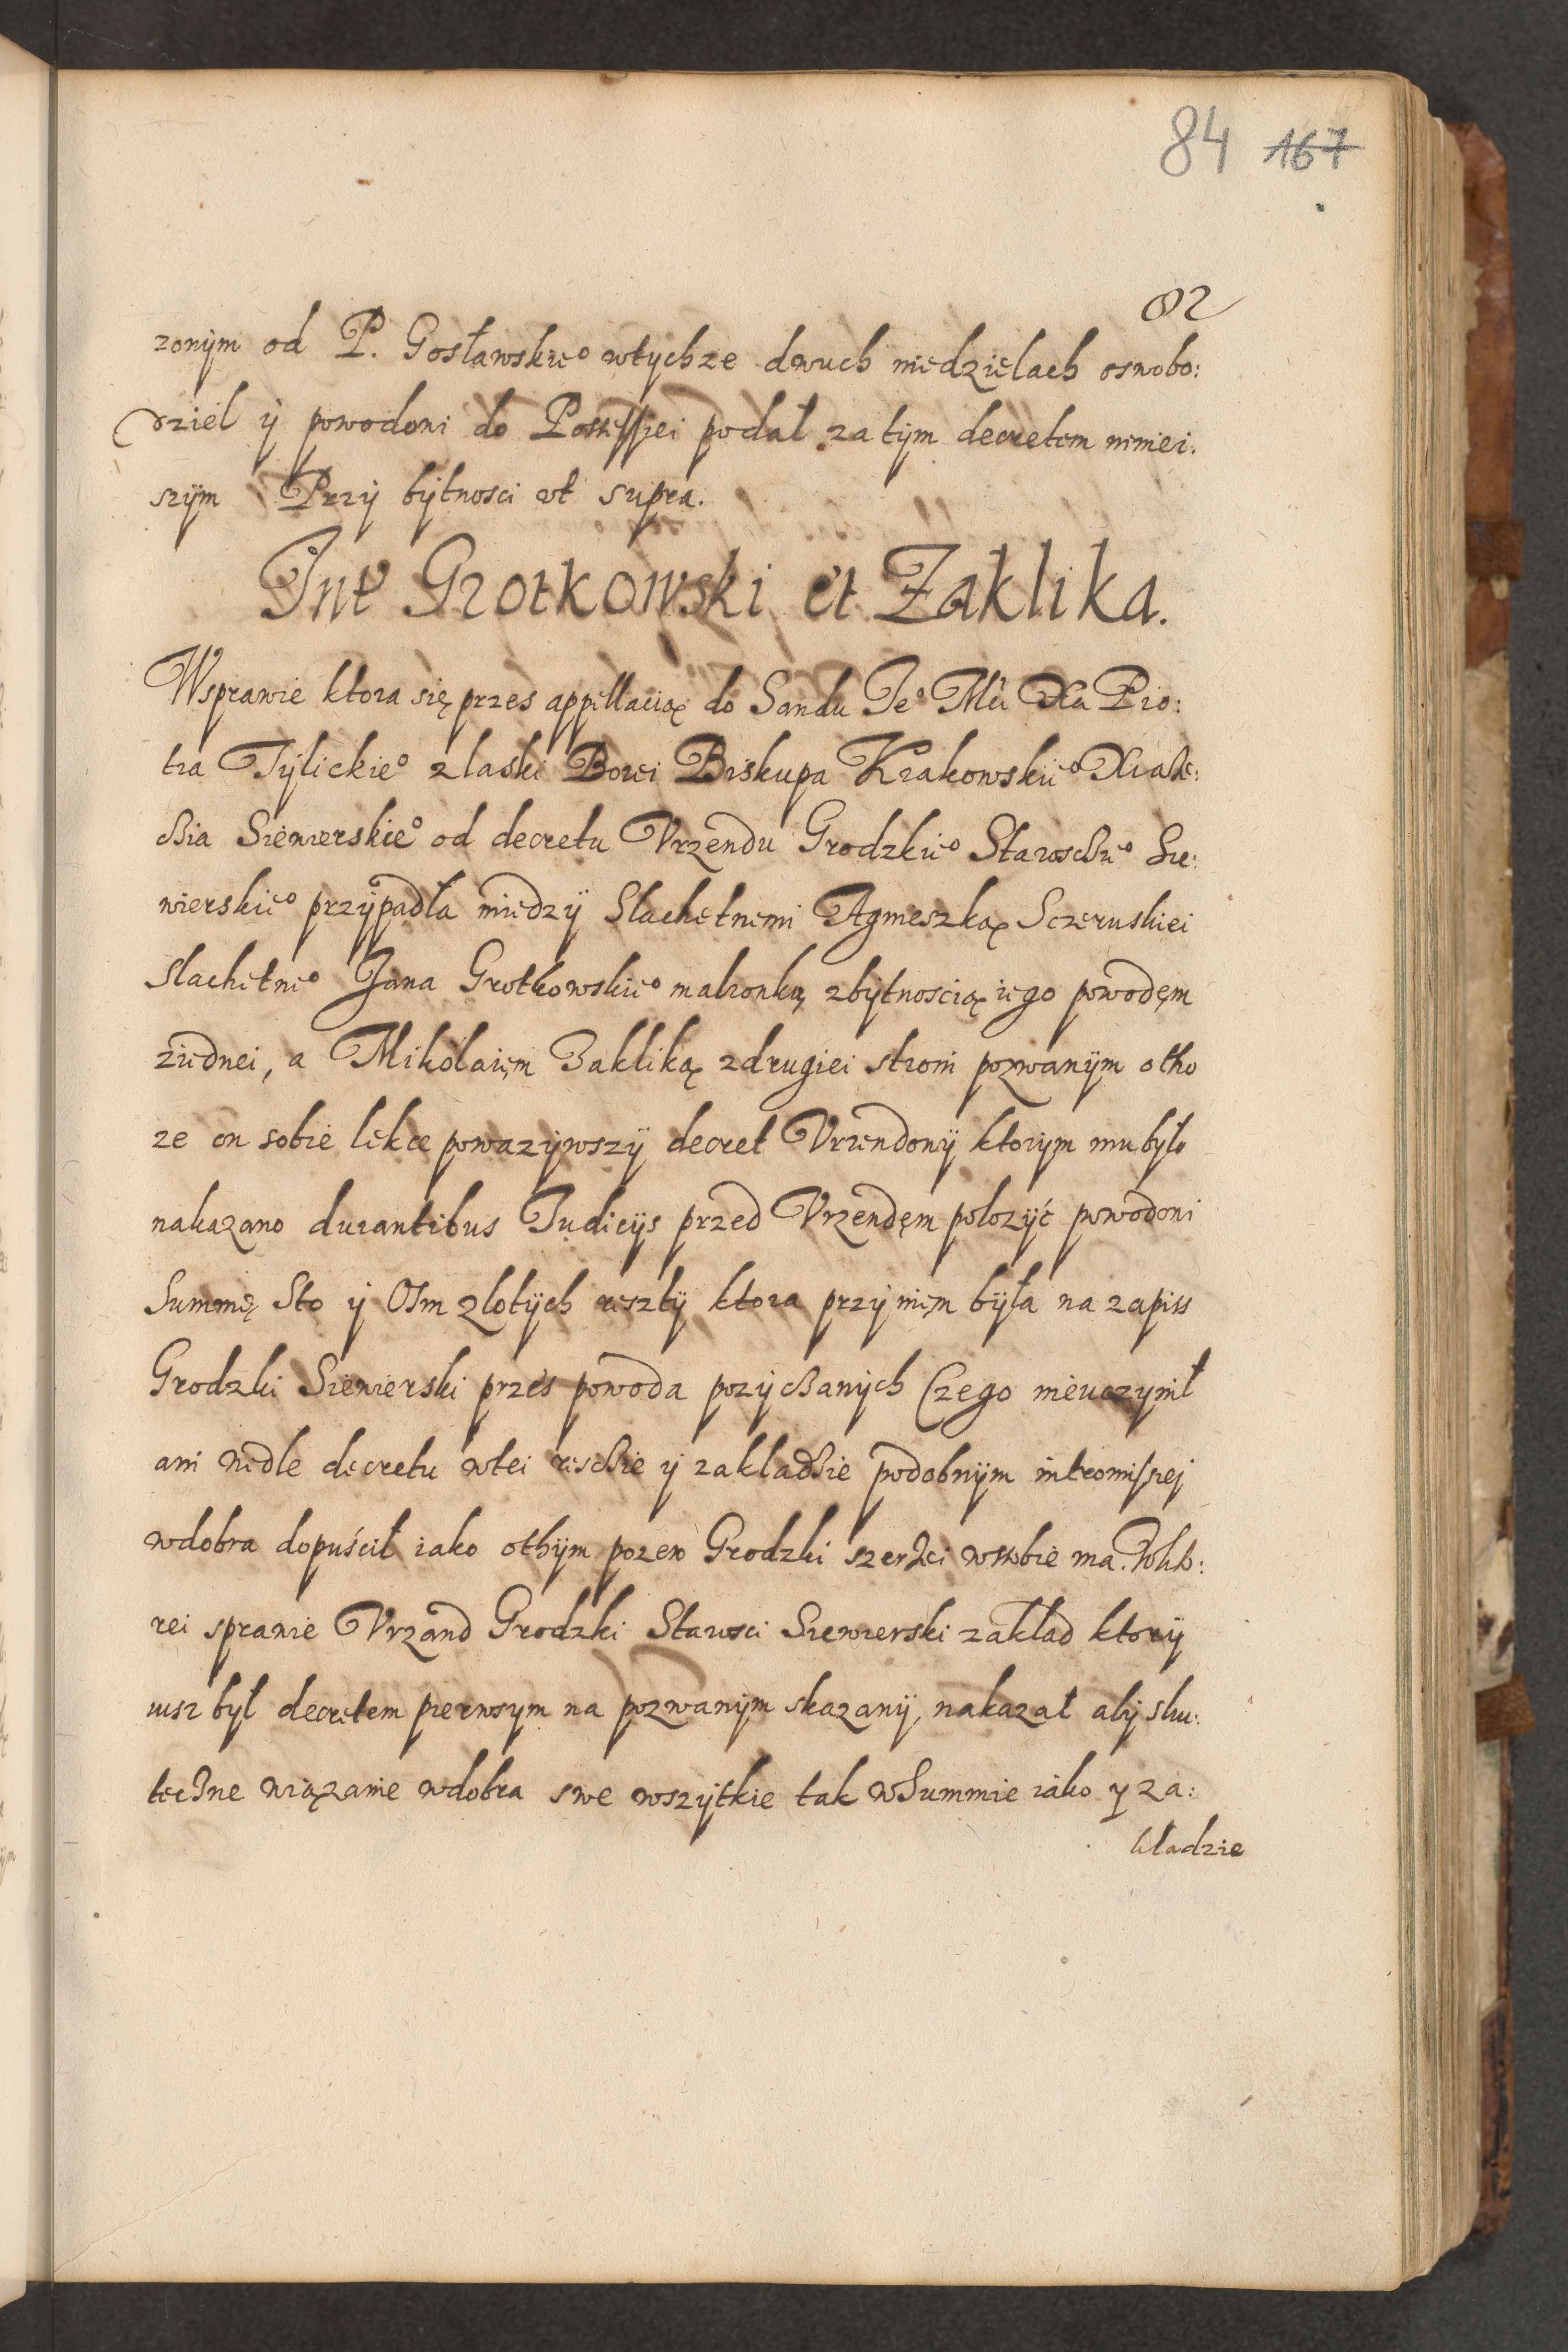 84 167
82
zonym od P. Gosławskie⁰ wtychze dwuch niedzielach oswobo:
dziel ÿ powodoni do Possessiei podał za tÿm decretem niniei:
szÿm Przÿ bÿtnosci ut supra.
Int Grotkowski et Zaklika.
Wsprawie ktora się przes appellacią do Sandu Je⁰ Mci Xa Pio:
tra Tÿlickie⁰ zlaski Bozei Biskupa Krakowskie⁰ Xiaze:
cia Siewierskie⁰ od decretu Vrzendu Grodzkie⁰ Staroscie⁰ Sie:
wierskie⁰ przÿpadła miedzÿ Slachetnemi Agnieszką Sczeruskiei
Slachetne⁰ Jana Grotkowskie⁰ malzonką zbÿtnoscią iego powodęm
ziednei, a Mikołaięm Zakliką zdrugiei stroni pozwanÿm otho
ze on sobie lekce powazÿwszÿ decret Vrzendowÿ ktorÿm mu bÿło
nakazano durantibus Judicÿs przed Vrzendęm polozÿć powodoni
Summę Sto ÿ Osm zlotÿch resztÿ ktora przÿ nięm bÿła na zapiss
Grodzki Siewierski przes powoda pozÿczanÿch Czego nieuczÿnił
ani wedle decretu wtei resczie ÿ zakladzie podobnÿm intromissiej
wdobra dopuścił iako othÿm pozew Grodzki szerzei wsobie ma. Wkto:
rei sprawie Vrzand Grodzki Starosci Siewierski zakład ktorÿ
iusz bÿł decretem pierwsym na pozwanÿm skazanÿ, nakazał abÿ sku:
teczne wiązanie wdobra swe wszÿtkie tak wSummie iako ÿ za:
kładzie